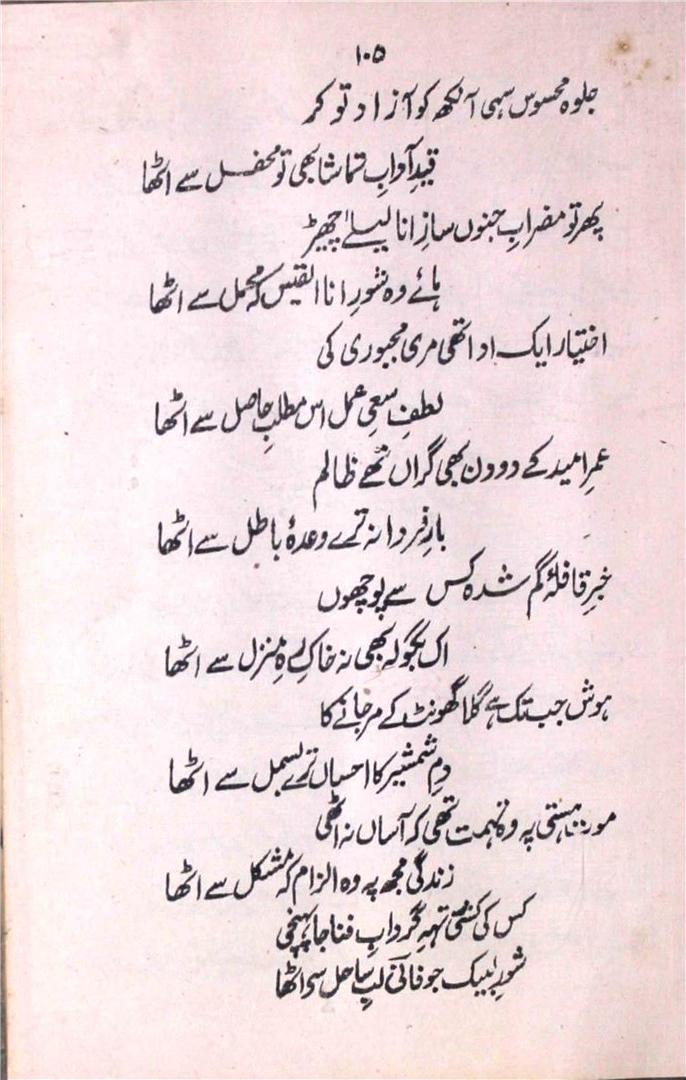 ۱۰۵
جلوہ محسوس سہی آنکھ کو آزاد تو کر
قیدِ آدابِ تماشا بھی تو محفل سے اٹھا
پھر تو مضرابِ جنوں سازِ انا لیلےٰ چھیڑ
ہائے وہ شورِ انا القیس کہ محمل سے اٹھا
اختیار ایک ادا تھی مری مجبوری کی
لطفِ سعیِ عمل اس مطلبِ حاصل سے اٹھا
عمرِ امید کے دو دن بھی گراں تھے ظالم
بارِ فردا نہ ترے وعدۂ باطل سے اٹھا
خبرِ قافلۂ گم شدہ کس سے پوچھوں
اک بگولہ بھی نہ خاکِ رہِ منزل سے اٹھا
ہوش جب تک ہے گلا گھونٹ کے مر جانے کا
دمِ شمشیر کا احساں ترے بسمل سے اٹھا
موت ہستی پہ وہ تہمت تھی کہ آساں نہ اٹھی
زندگی مجھ پہ وہ الزام کہ مشکل سے اٹھا
کس کی کشتی تہہِ گردابِ فنا جا پہنچی
شورِ لبیک جو فانیؔ لبِ ساحل سے اٹھا